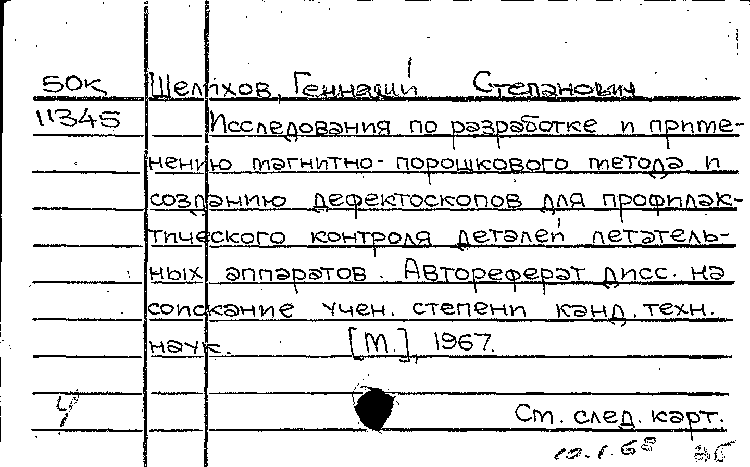 50К Шелихов, Геннадий Степанович
11345 Исследования по разработке и приме-
нению магнитно-порошкового метода и
созданию дефектоскопов для профилак-
тического контроля деталей летатель-
ных аппаратов. Автореферат дисс. на
соискание учен. степени канд. техн.
наук. [М.], 1967.
У См. след. карт.